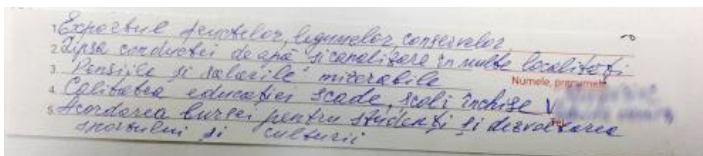 1 Exportul fructelor, legumelor, conservelor
2. Lipsa conductei de apă și canalizare în multe localități
3. Pensiile și salariile mizerabile
Numele, prenumele
4. Calitatea educației scade, școli închise
5. Acordarea bursei pentru studenți și dezvoltarea
sportului și culturii